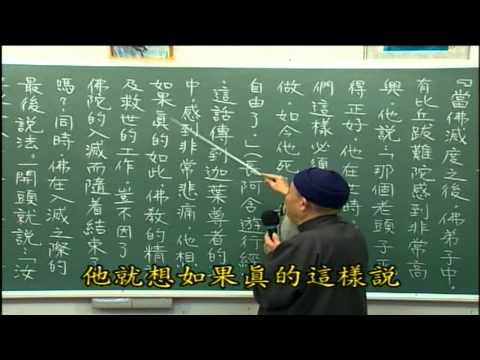 『當佛滅度之後,佛弟子中,
有比丘跋難陀感到非常高
興,他說:「那個老頭子
得正好,他在
們這樣必須
做,如今他死
自由了。」(長阿含遊行經
,這話傳到迦葉尊者的
中,感到非常悲痛,他想
如果真的如此,佛教的精
及救世的工作,豈不因了
佛陀的入滅而隨着結束
嗎?同時,佛在入滅之際的
最後說法,一開頭就說:「汝
他就想如果真的這樣說